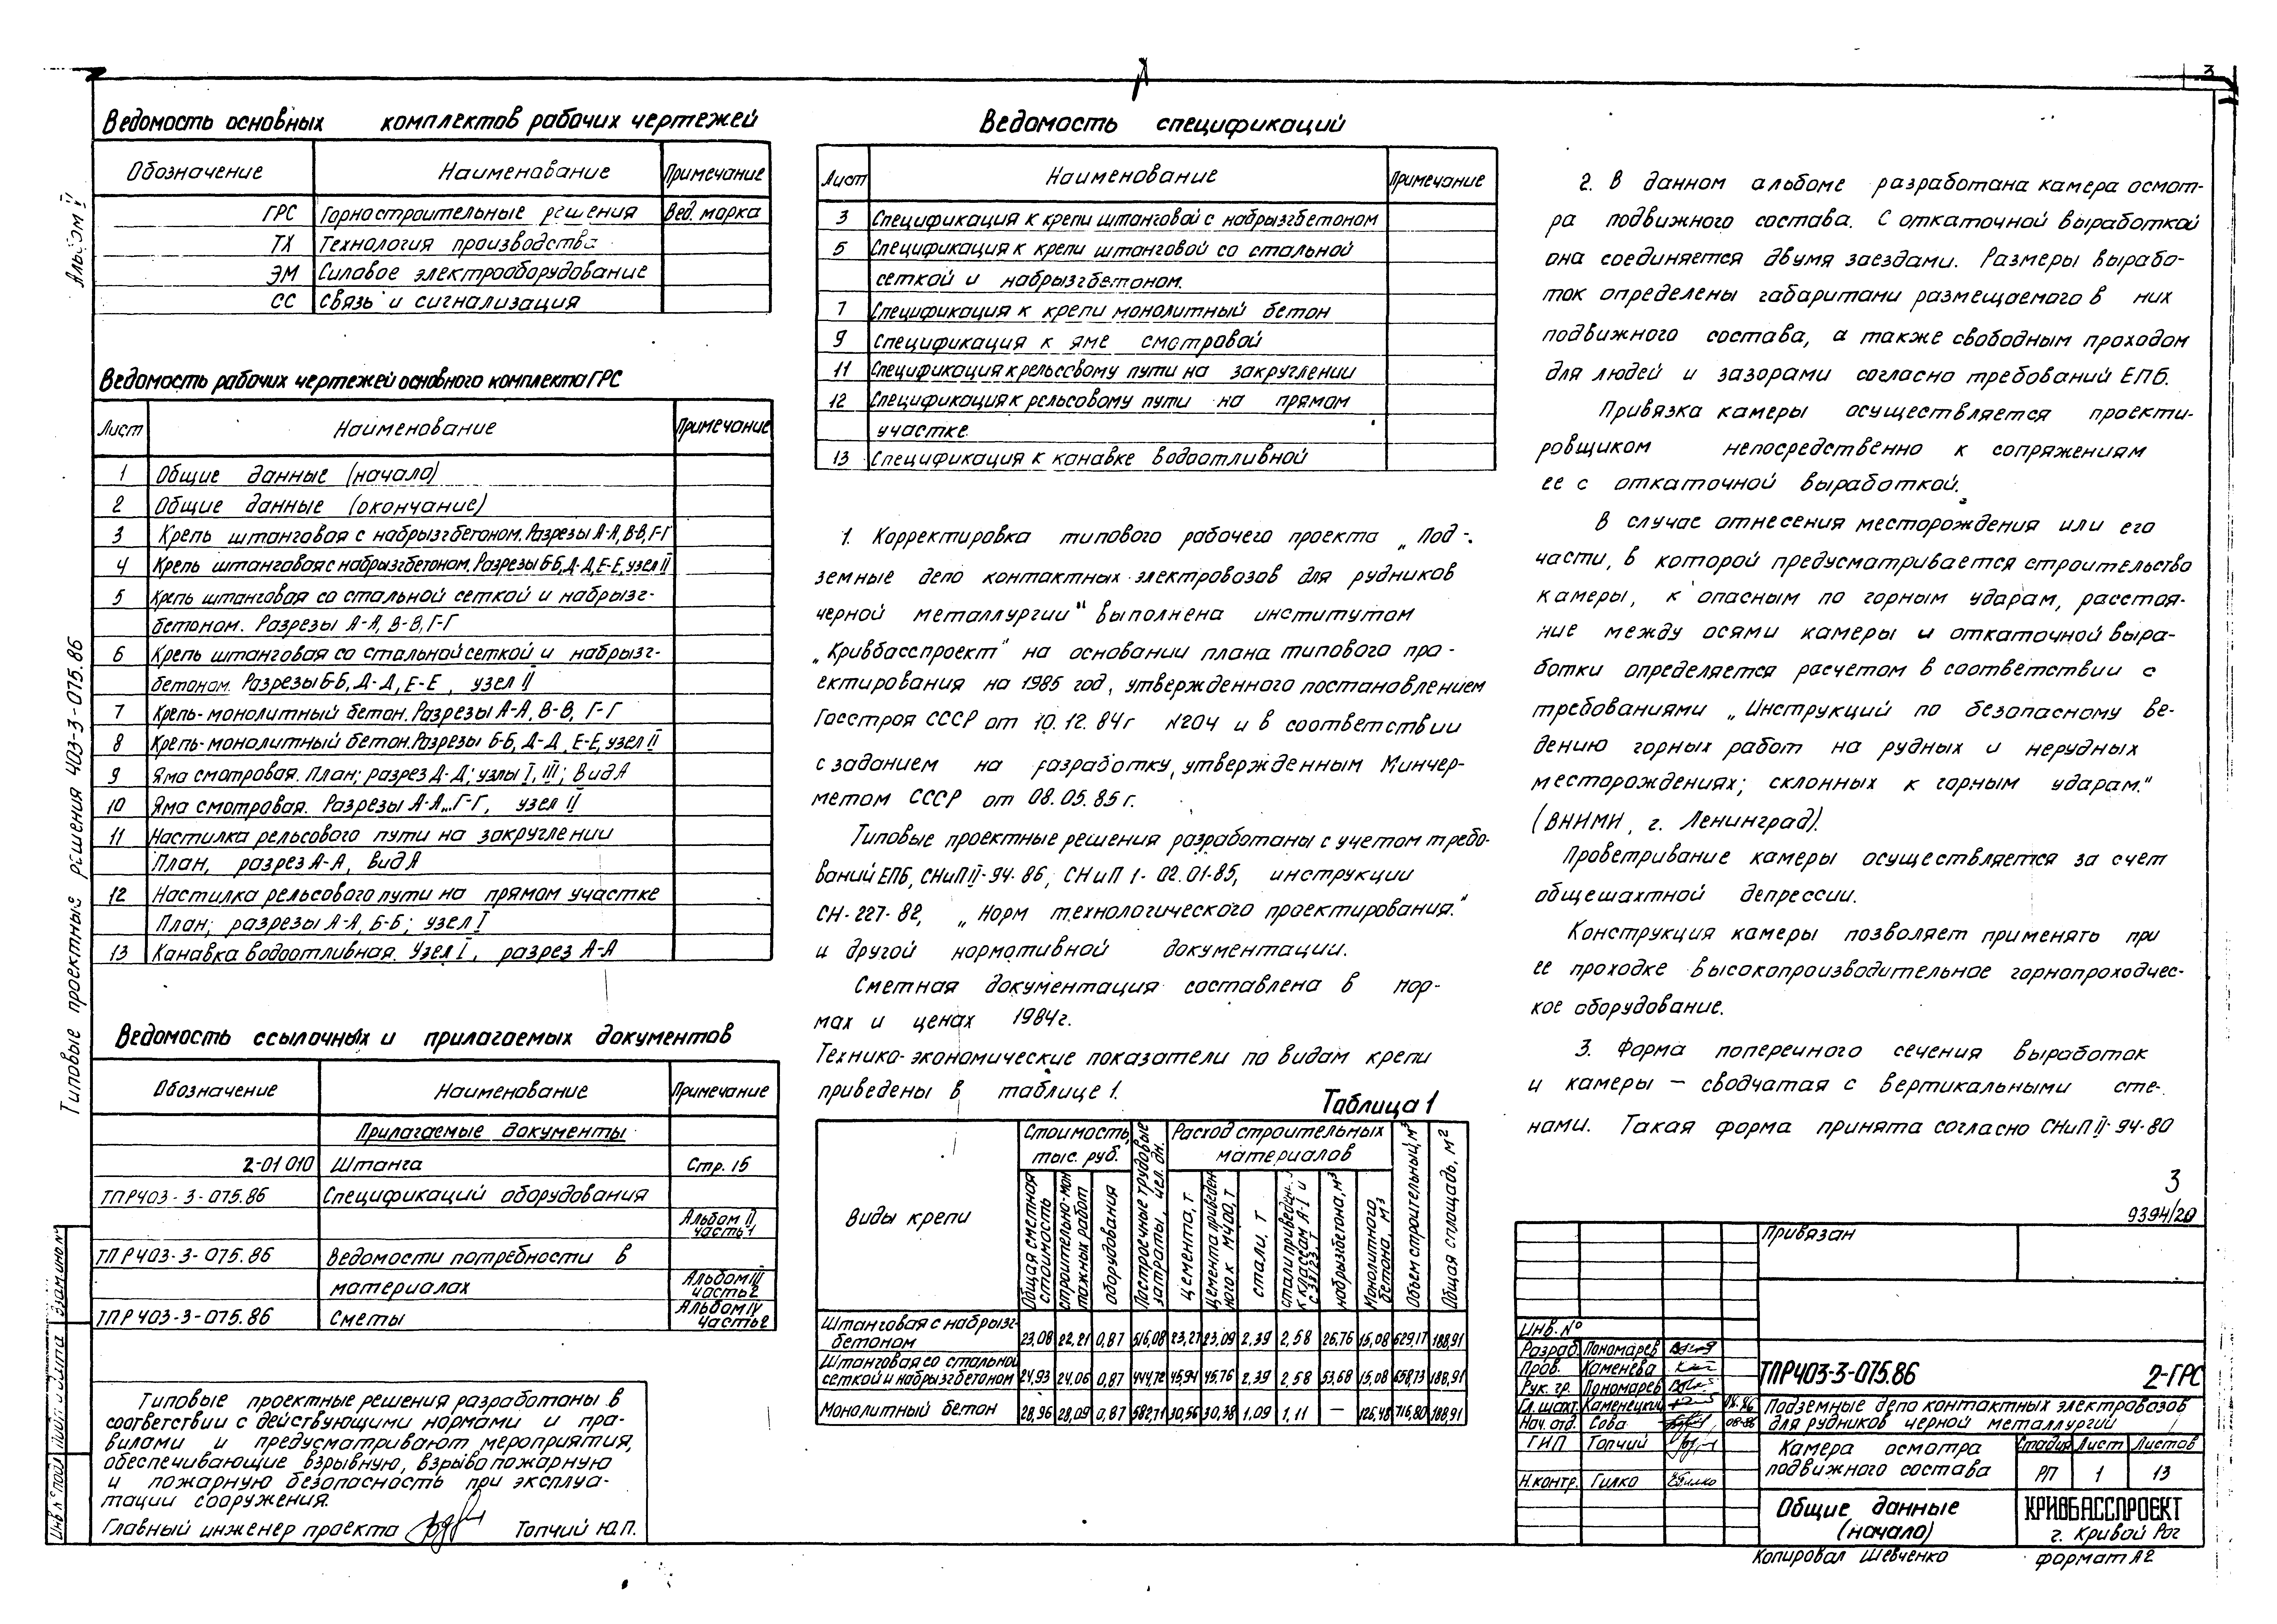 3
Альбом V
Типовые проектные решения 403-3-075.86
Ведомость основных комплектов рабочих чертежей
Обозначение Наименование Примечание
ГРС Горностроительные решения Вед. марка
ТХ Технология производства
ЭМ Силовое электрооборудование
СС Связь и сигнализация
Ведомость рабочих чертежей основного комплекта ГРС
Лист Наименование Примечание
1 Общие данные (начало)
2 Общие данные (окончание)
3 Крепь штанговая с набрызгбетоном. Разрезы А-А, В-В, Г-Г
4 Крепь штанговая с набрызгбетоном. Разрезы Б-Б, Д-Д, Е-Е, узел II
5 Крепь штанговая со стальной сеткой и набрызг-
бетоном. Разрезы А-А, В-В, Г-Г
6 Крепь штанговая со стальной сеткой и набрызг-
бетоном. Разрезы Б-Б, Д-Д, Е-Е, узел II
7 Крепь-монолитный бетон. Разрезы А-А, В-В, Г-Г
8 Крепь-монолитный бетон. Разрезы Б-Б, Д-Д, Е-Е, узел II
9 Яма смотровая. План; разрез Д-Д; узлы I, III; Вид А
10 Яма смотровая. Разрезы А-А...Г-Г, узел II
11 Настилка рельсового пути на закруглении
План, разрез А-А, вид А
12 Настилка рельсового пути на прямом участке
План; разрезы А-А, Б-Б; узел I
13 Канавка водоотливная. Узел I, разрез А-А
Ведомость ссылочных и прилагаемых документов
Обозначение Наименование Примечание
Прилагаемые документы
2-01 010 Штанга Стр. 15
ТПР403-3-075.86 Спецификаций оборудования
Альбом II
часть 1
ТПР403-3-075.86 Ведомости потребности в
материалах Альбом III
часть 2
ТПР403-3-075.86 Сметы Альбом IV
часть 2
Типовые проектные решения разработаны в
соответствии с действующими нормами и пра-
вилами и предусматривают мероприятия,
обеспечивающие взрывную, взрывопожарную
и пожарную безопасность при эксплуа-
тации сооружения.
Главный инженер проекта Топчий Ю.П.
Инв. № подл. Подп. и дата Взам. инв. №
Ведомость спецификаций
Лист Наименование Примечание
3 Спецификация к крепи штанговой с набрызгбетоном
5 Спецификация к крепи штанговой со стальной
сеткой и набрызгбетоном.
7 Спецификация к крепи монолитный бетон
9 Спецификация к яме смотровой
11 Спецификация к рельсовому пути на закруглении
12 Спецификация к рельсовому пути на прямом
участке.
13 Спецификация к канавке водоотливной
1. Корректировка типового рабочего проекта „Под-
земные депо контактных электровозов для рудников
черной металлургии" выполнена институтом
„Кривбасспроект" на основании плана типового про-
ектирования на 1985 год, утвержденного постановлением
Госстроя СССР от 10.12.84г N204 и в соответствии
с заданием на разработку, утвержденным Минчер-
метом СССР от 08.05.85г.
Типовые проектные решения разработаны с учетом требо-
ваний ЕПБ, СНиП II-94-86, СНиП I-02.01-85, инструкции
СН-227-82, „Норм технологического проектирования."
и другой нормотивной документации.
Сметная документация составлена в нор-
мах и ценах 1984г.
Технико-экономические показатели по видам крепи
приведены в таблице 1.
Таблица 1
Виды крепи Стоимость, тыс. руб. Построечные трудовые затраты, чел. дн. Расход строительных материалов Объем строительный, м³ Общая площадь, м²
Общая сметная стоимость строительно-монтажных работ оборудования цемента, т цемента приведенного к М400, т стали, т стали приведен. к классам А-I и С38/23, т набрызгбетона, м³ Монолитного бетона, м³
Штанговая с набрызг-
бетоном 23,08 22,21 0,87 516,08 23,27 23,09 2,39 2,58 26,76 15,08 629,17 188,91
Штанговая со стальной
сеткой и набрызгбетоном 24,93 24,06 0,87 444,72 45,94 45,76 2,39 2,58 53,68 15,08 658,73 188,91
Монолитный бетон 28,96 28,09 0,87 582,71 30,56 30,38 1,09 1,11 — 126,48 716,80 188,91
2. В данном альбоме разработана камера осмот-
ра подвижного состава. С откаточной выработкой
она соединяется двумя заездами. Размеры вырабо-
ток определены габаритами размещаемого в них
подвижного состава, а также свободным проходом
для людей и зазорами согласно требований ЕПБ.
Привязка камеры осуществляется проекти-
ровщиком непосредственно к сопряжениям
ее с откаточной выработкой.
В случае отнесения месторождения или его
части, в которой предусматривается строительство
камеры, к опасным по горным ударам, расстоя-
ние между осями камеры и откаточной выра-
ботки определяется расчетом в соответствии с
требованиями „Инструкций по безопасному ве-
дению горных работ на рудных и нерудных
месторождениях; склонных к горным ударам."
(ВНИМИ, г. Ленинград).
Проветривание камеры осуществляется за счет
общешахтной депрессии.
Конструкция камеры позволяет применять при
ее проходке высокопроизводительное горнопроходчес-
кое оборудование.
3. Форма поперечного сечения выработок
и камеры — сводчатая с вертикальными сте-
нами. Такая форма принята согласно СНиП II-94-80
3
9394/20
Привязан
Инв. №
Разраб. Пономарев
Пров. Каменева
Рук. гр. Пономарев
Гл. шахт. Каменецкий 08.86
Нач. отд. Сова 08.86
ГИП Топчий
Н. контр. Гилко
ТПР403-3-075.86 2-ГРС
Подземные депо контактных электровозов
для рудников черной металлургии
Камера осмотра
подвижного состава
Стадия Лист Листов
РП 1 13
Общие данные
(начало)
КРИВБАССПРОЕКТ
г. Кривой Рог
Копировал Шевченко формат А2